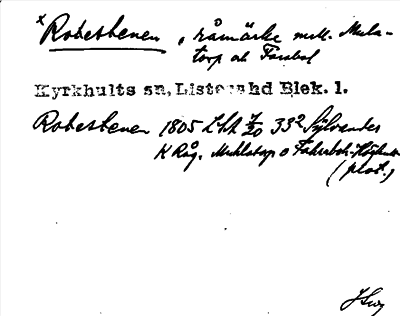 x Robestenen, råmärke mell. Mula-
torp ok Farabol
Kyrkhults sn, Listers hd Blek. l.
Robestenen 1805 Lhk 7/20 332 Sylvendes
K Råg. Muhlatorp o Fahrboh-
(plat.)